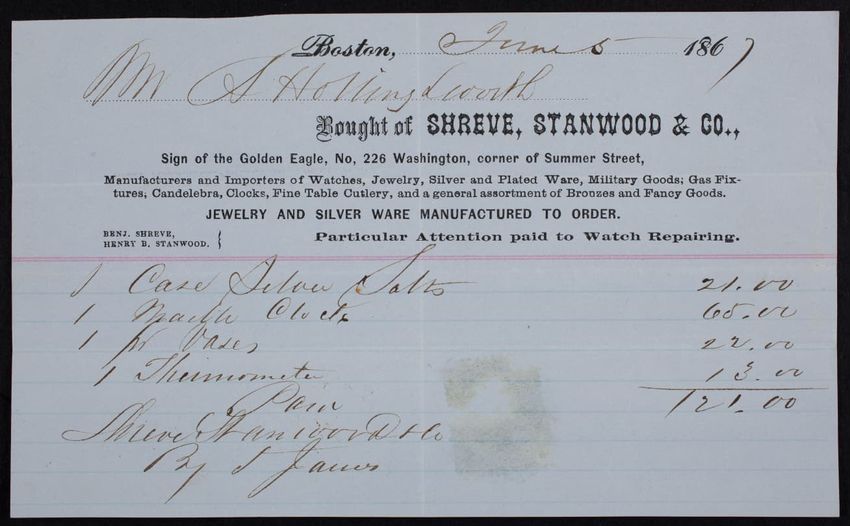 Boston, June 5 1867
Mr S Hollingsworth
Bought of SHREVE, STANWOOD & CO.,
Sign of the Golden Eagle, No, 226 Washington, corner of Summer Street,
Manufacturers and Importers of Watches, Jewelry, Silver and Plated Ware, Military Goods; Gas Fix-
tures; Candelebra, Clocks, Fine Table Cutlery, and a general assortment of Bronzes and Fancy Goods.
JEWELRY AND SILVER WARE MANUFACTURED TO ORDER.
BENJ. SHREVE,
HENRY B. STANWOOD. {
Particular Attention paid to Watch Repairing.
1 Case Silver Salts 21.00
1 Marble Clock 65.00
1 pr Vases 22.00
1 Thermometer 13.00
Paid 121.00
Shreve Stanwood & Co
By J James